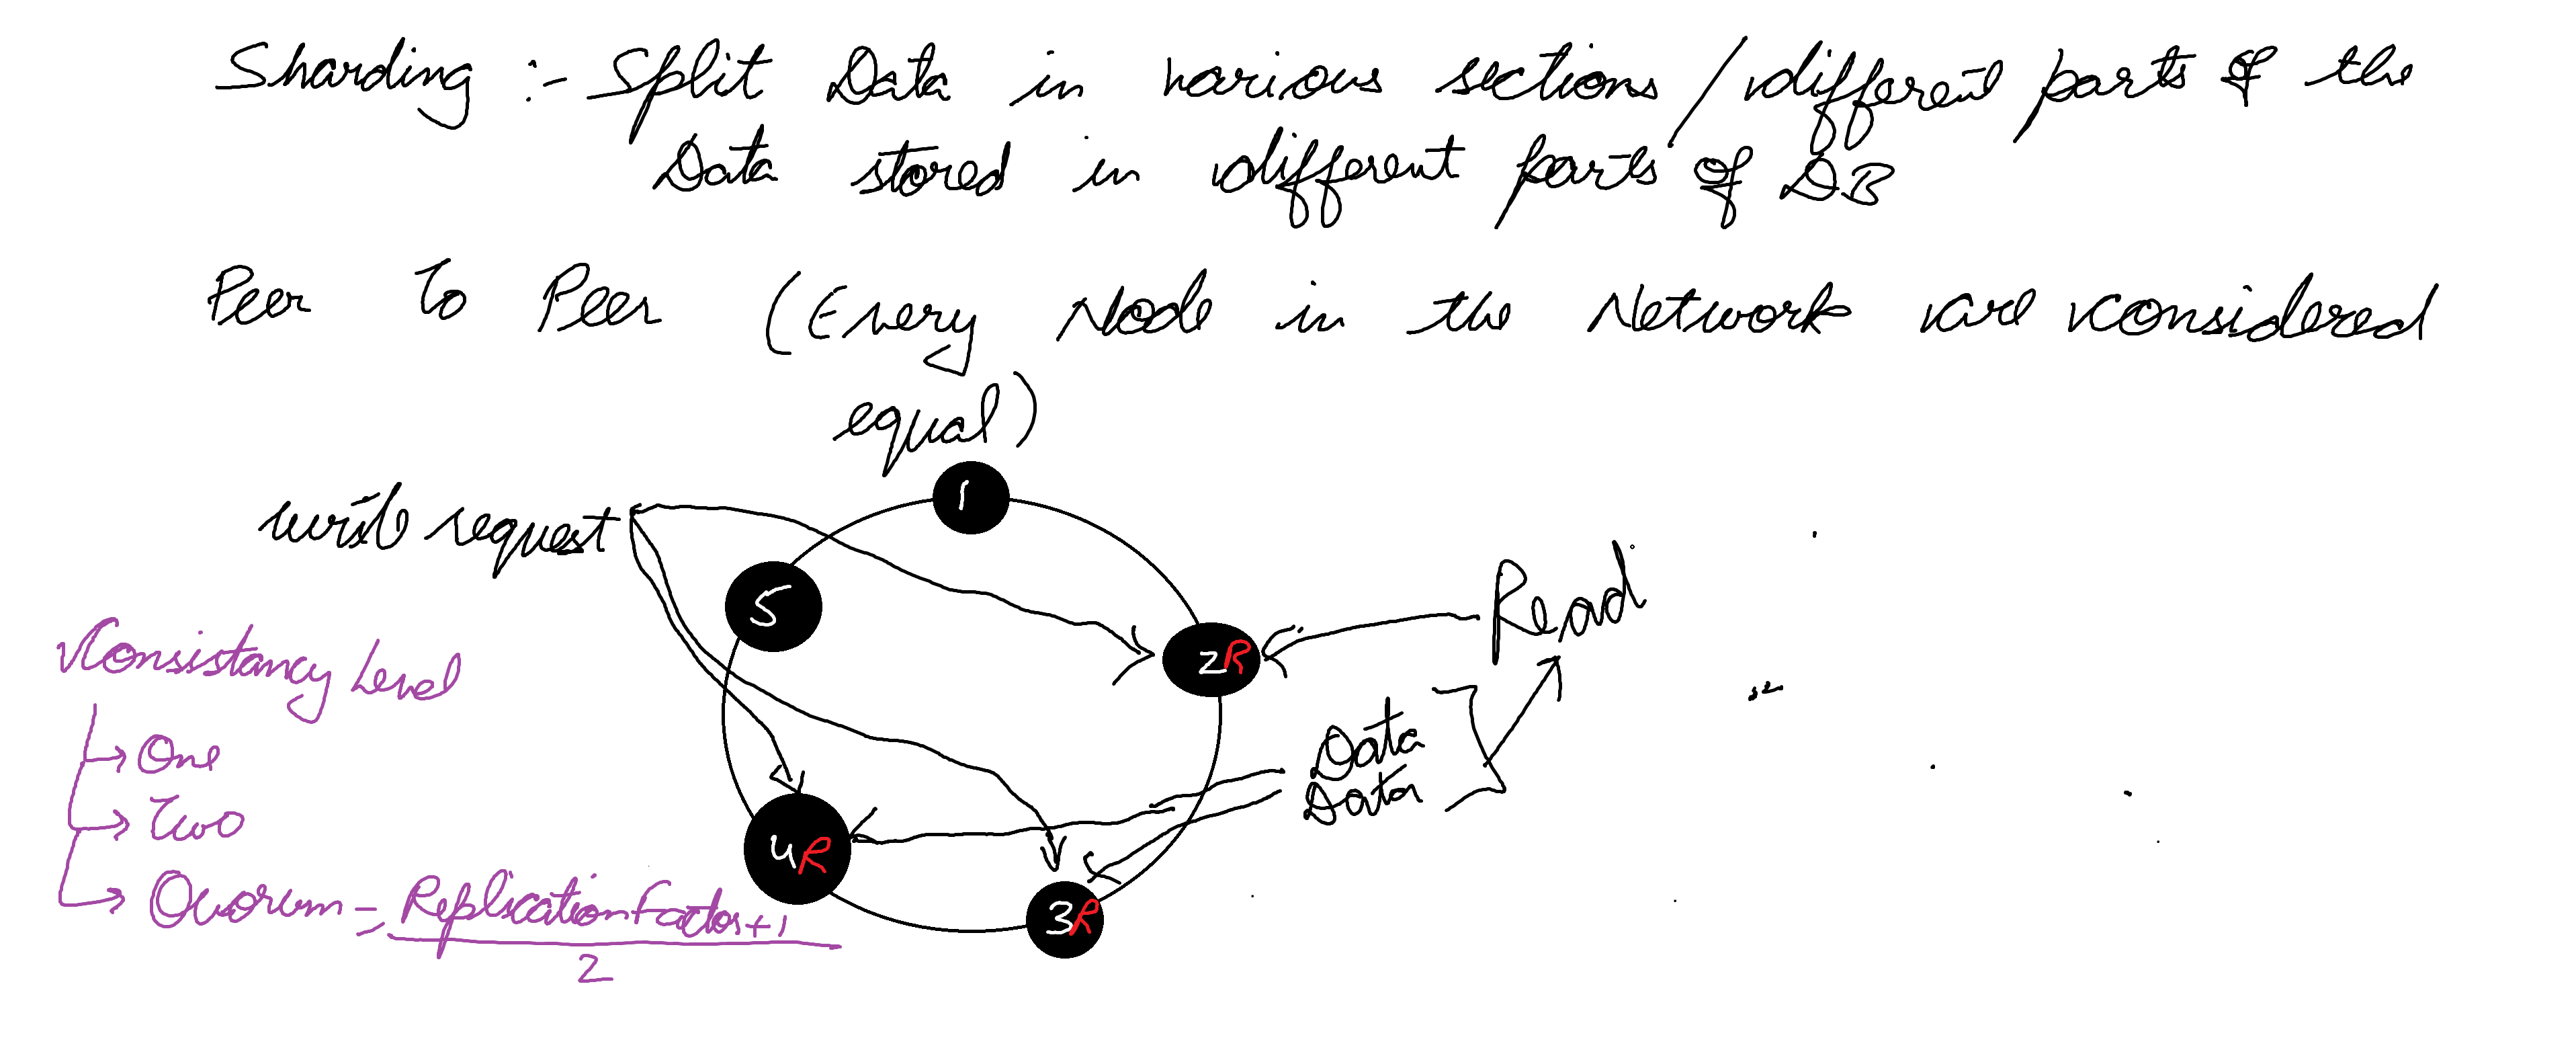 Sharding :- Split Data in various sections / different parts of the
Data stored in different parts of DB
Peer To Peer (Every Node in the Network are considered
equal)
1
write request
5
Read
2R
Consistancy Level
Data
One
Data
Two
4R
Quorum = Replication Factor + 1
2
3R